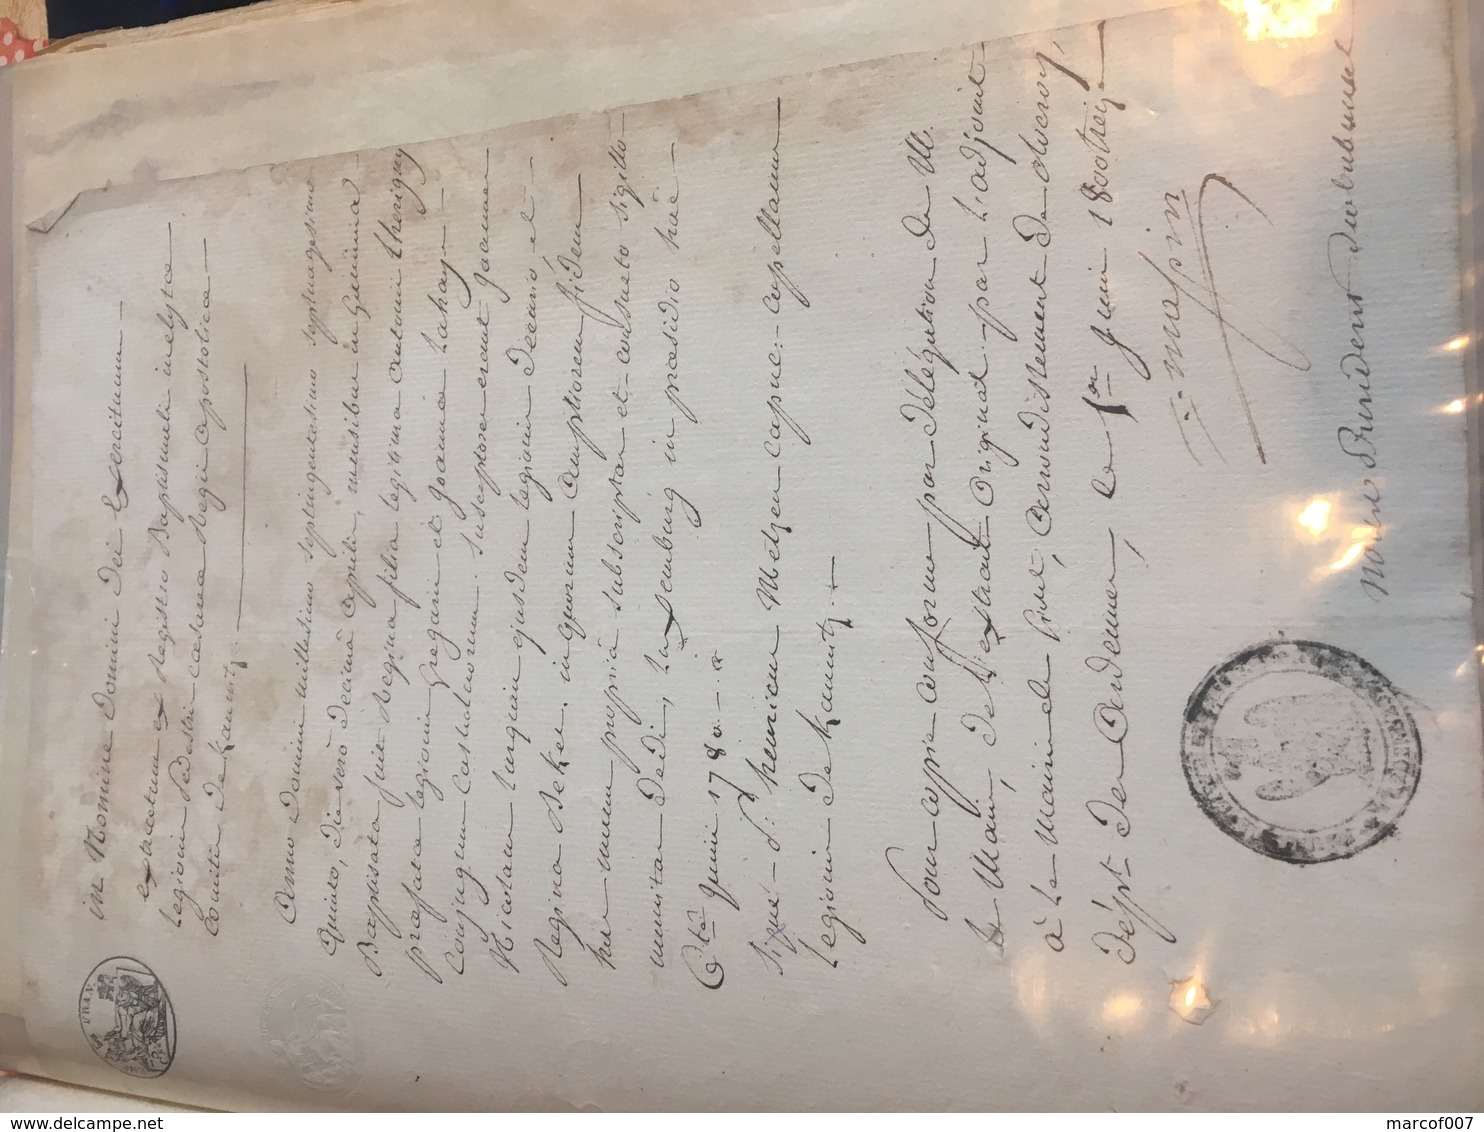 in Nomine Domini Dei Exercituum
extractum ex Registro Baptismali inclytæ
Legionis Pedestris Cæsareæ Regiæ Apostolicæ
Comitis de Kaunitz.
Anno Domini millesimo septingentesimo septuagesimo
quinto, die vero decimâ aprilis, mensibus in
Baptisata fuit Regina filia legitima antonii Therigny
præfatæ legionis Gregarii et Joanna Lahaye
Conjugum Catholicorum. susceptores erant Joannes
Nicolaus Lurquin ejusdem legionis Decurio et
Regina Seker. in quorum ampliorem fidem
has manu propriâ subscriptas et consueto sigillo
munitas dedi, Luxemburg in præsidio hâc
6tâ Junii 1780.
Signé P. henricus Metzen Capuc. Capellanus
Legionis de Kaunitz.
Pour copie conforme par délégation de M.
le Maire, de l'extrait Original par l'adjoint
à la Mairie de, arrondissement de Rocroy,
dépt. des Ardennes, le 1er Juin 1800 treize
Maspin
Nous Président du tribunal
FRAN.
marcof007